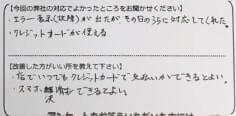 【今回の弊社の対応でよかったところをお聞かせください】
・エラー表示(故障)が出たが、その日のうちに対応してくれた。
・クレジットカードが使える
【改善した方がいい所を教えて下さい】
・店でいつでもクレジットカードで支払いができるとよい。
・スマホ決済もできるとよい。